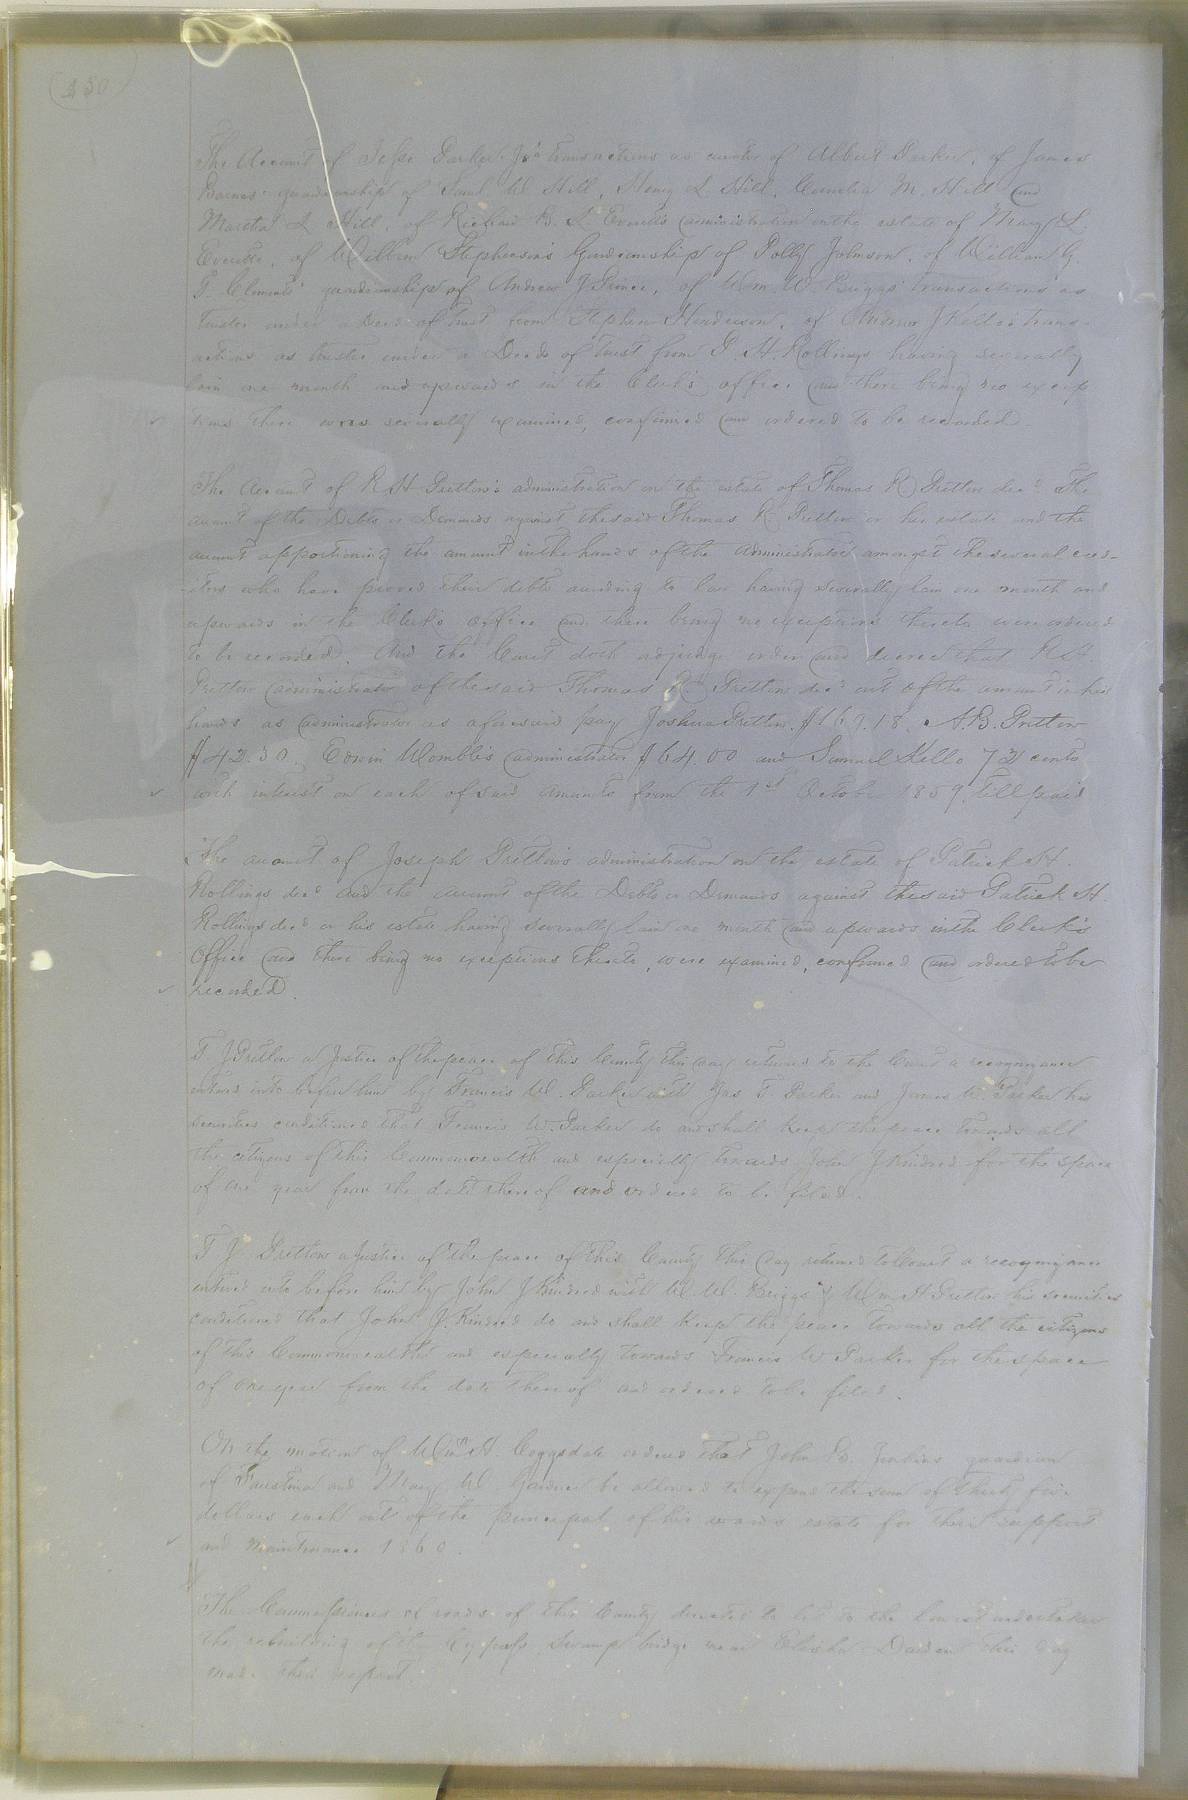 250
The Account of Jesse Parker Jr's transactions as curator of Albert Parker, of James
Barnes' guardianship of Saml. W Hill, Henry L Hill, Cornelia M. Hill and
Martha L Hill, of Richard B. L Everett's administration on the estate of Mary L
Everette, of William Stephenson's Guardianship of Polly Johnson, of William G.
T. Clements' guardianship of Andrew J Prince, of Wm. W. Briggs' transactions as
Trustee under a Deed of Trust from Stephen Henderson, of Andrew J Kello's trans-
actions as trustee under a Deed of Trust from P. H. Rollings having severally
lain one month and upwards in the Clerk's office and there being no excep
tions there were severally examined, confirmed and ordered to be recorded.
The Account of R H Pretlow's administration on the estate of Thomas R Pretlow decd. The
account of the Debts or Demands against the said Thomas R Pretlow or his estate and the
account apportioning the amount in the hands of the administrator amongst the several cred-
-itors who have proved their debts according to law having severally lain one month and
upwards in the Clerk's office and there being no exceptions thereto were ordered
to be recorded. And the Court doth adjudge order and decree that R H
Pretlow administrator of the said Thomas R Pretlow decd out of the amount in his
hands as administrator as aforesaid pay Joshua Pretlow $169.18. A.B. Pretlow
$42.30. Edwin Womble's administrator $64.00 and Samuel Kello 73 cents
with interest on each of said amounts from the 1st October 1859 till paid
The account of Joseph Pretlow's administration on the estate of Patrick H.
Rollings decd and the account of the Debts or Demands against the said Patrick H.
Rollings decd or his estate having severally lain one month and upwards in the Clerk's
Office and there being no exceptions thereto, were examined, confirmed and ordered to be
recorded.
T J Pretlow a Justice of the peace of this County this day returned to the Court a recognizance
entered into before him by Francis W. Parker with Jas T. Parker and James W. Parker his
securities conditioned that Francis W. Parker do and shall keep the peace towards all
the citizens of this Commonwealth and especially towards John J Kindred for the space
of one year from the date thereof and ordered to be filed.
T J Pretlow a Justice of the peace of this County this day returned to Court a recognizance
entered into before him by John J Kindred with W. W. Briggs & Wm H Pretlow his securities
conditioned that John J. Kindred do and shall keep the peace towards all the citizens
of this Commonwealth and especially towards Francis W Parker for the space
of one year from the date thereof and ordered to be filed.
On the motion of Wm H. Coggsdale ordered that John B. Jenkins guardian
of Faustina and Mary W. Gardner be allowed to expend the sum of thirty five
dollars each out of the principal of his wards estate for their support
and maintenance 1860.
The Commissioners of roads of this County directed to let to the lowest undertaker
the rebuilding of the Swamp bridge near Elisha Darden this day
made their report.